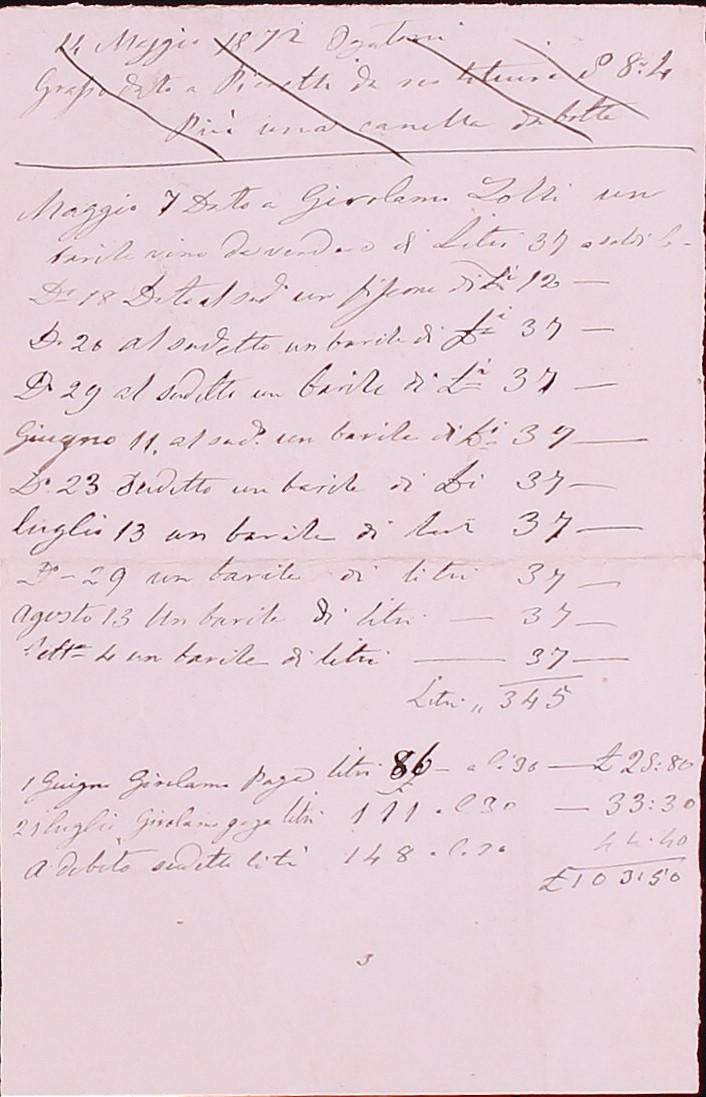 Maggio 1872
dato a da
Più una canella da botte
Maggio 7 Dato a Girolamo Lotti un
barile vino da vendere di Litri 37 a soldi 6 -
D° 18 Dato al sud° un di Li 12 —
D° 20 al sudetto un barile di Li 37 —
D° 29 al sudetto un barile di Li 37 —
Giugno 11, al sud° un barile di Li 37 —
D° 23 Sudetto un barile di Li 37 —
luglio 13 un barile di 37 —
D° - 29 un barile di litri 37 —
Agosto 13 Un barile di litri — 37 —
4 un barile di litri — 37 —
Litri „ 345
1 Giugno Girolamo Paga litri 86 - a — £ 28:80
21 luglio Girolamo paga litri 111 — 33:30
A debito sudetto litri 148 44.40
£ 103:50
3